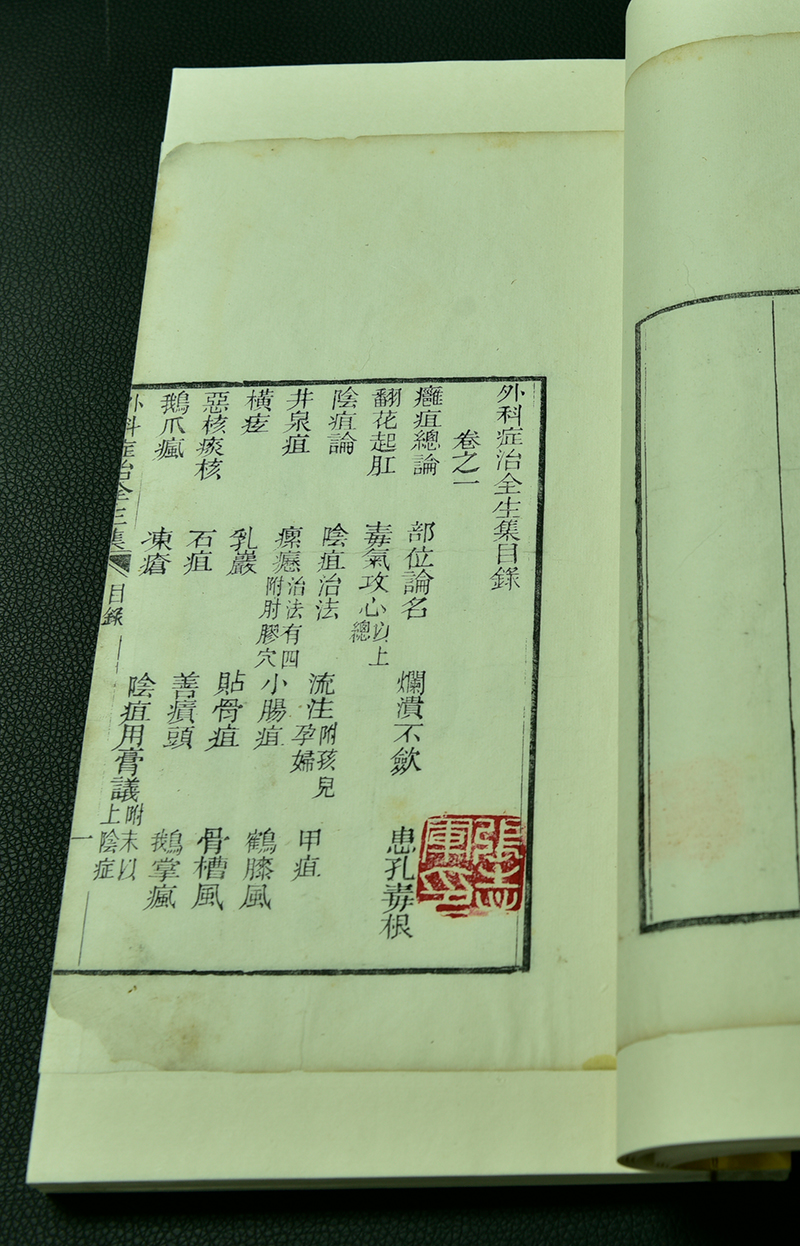 外科症治全生集目錄
卷之一
癰疽總論 部位論名 爛潰不斂 患孔毒根
翻花起肛 毒氣攻心 以上總
陰疽論 陰疽治法 流注 附孩兒孕婦 甲疽
井泉疽 瘰癧 治法有四附肘膠穴 小腸疽 鶴膝風
橫痃 乳巖 貼骨疽 骨槽風
惡核痰核 石疽 善瘡頭 鵝掌瘋
鵝爪瘋 凍瘡 陰疽用膏議 附未以上陰症
外科症治全生集 目錄 一